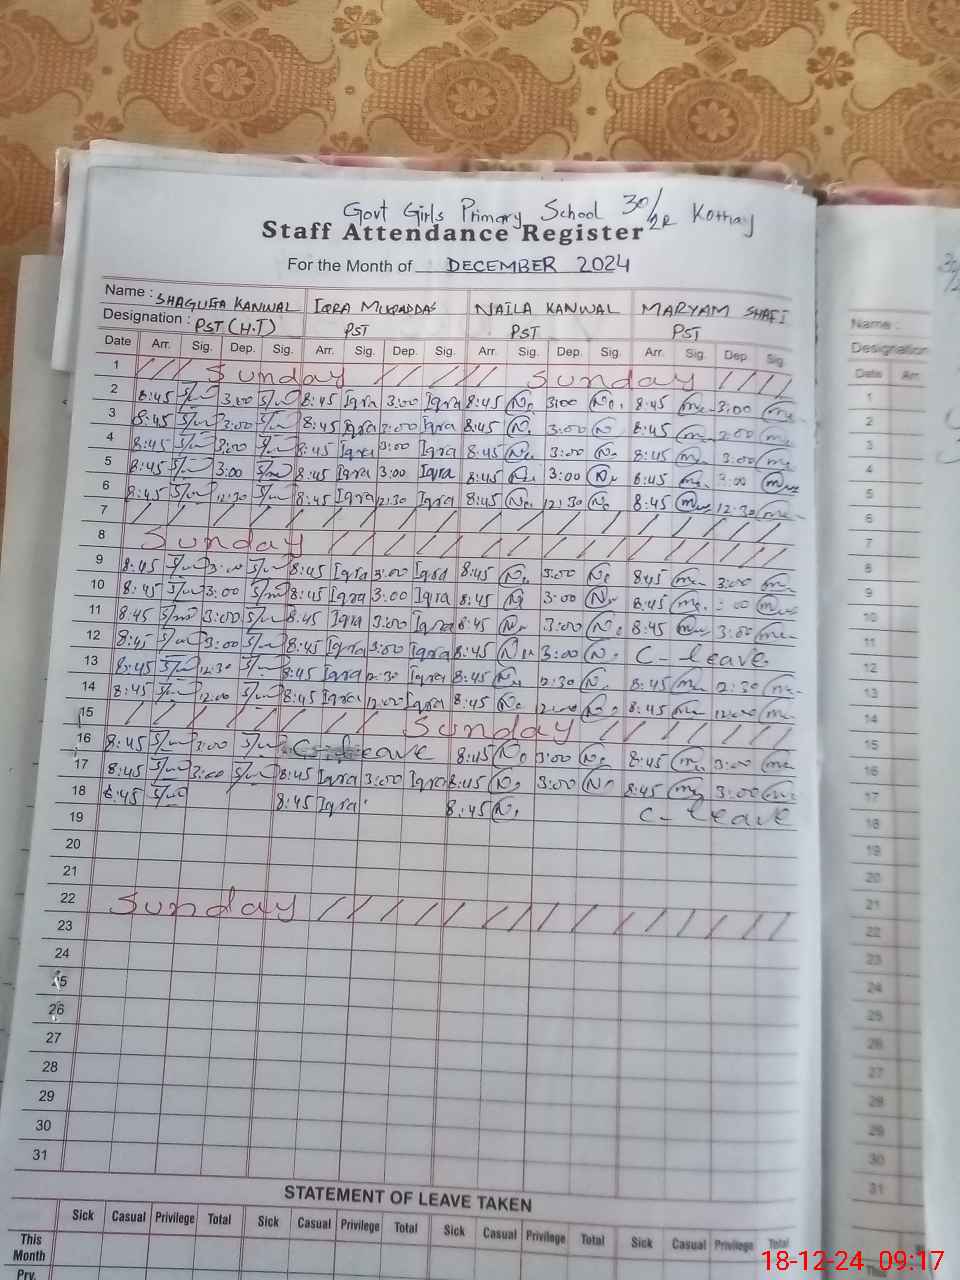 Govt Girls Primary School 30/2R Kothay
Staff Attendance Register
For the Month of DECEMBER 2024
Name : SHAGUFTA KANWAL IQRA MUQADDAS NAILA KANWAL MARYAM SHAFI
Designation : PST (H.T) PST PST PST
Date Arr. Sig. Dep. Sig. Arr. Sig. Dep. Sig. Arr. Sig. Dep. Sig. Arr. Sig. Dep Sig.
1 Sunday Sunday
2 8:45 3:00 8:45 Iqra 3:00 Iqra 8:45 3:00 8:45 3:00
3 8:45 3:00 8:45 Iqra 3:00 Iqra 8:45 3:00 8:45 3:00
4 8:45 3:00 8:45 Iqra 3:00 Iqra 8:45 3:00 8:45 3:00
5 8:45 3:00 8:45 Iqra 3:00 Iqra 8:45 3:00 8:45 3:00
6 8:45 12:30 8:45 Iqra 12:30 Iqra 8:45 12:30 8:45 12:30
7
8 Sunday
9 8:45 3:00 8:45 Iqra 3:00 Iqra 8:45 3:00 8:45 3:00
10 8:45 3:00 8:45 Iqra 3:00 Iqra 8:45 3:00 8:45 :00
11 8:45 3:00 8:45 Iqra 3:00 Iqra 8:45 3:00 8:45 3:00
12 8:45 3:00 8:45 Iqra 3:00 Iqra 8:45 3:00 C- leave.
13 8:45 12:30 8:45 Iqra 12:30 Iqra 8:45 12:30 8:45 12:30
14 8:45 12:00 8:45 Iqra 12:00 Iqra 8:45 12:00 8:45 12:00
15 Sunday
16 8:45 3:00 C- leave 8:45 3:00 8:45 3:00
17 8:45 3:00 8:45 Iqra 3:00 Iqra 8:45 3:00 8:45 3:00
18 8:45 8:45 Iqra 8:45 C- leave
19
20
21
22 Sunday
23
24
25
26
27
28
29
30
31
STATEMENT OF LEAVE TAKEN
Sick Casual Privilege Total Sick Casual Privilege Total Sick Casual Privilege Total Sick Casual Privilege Total
This Month
Prv.
Name :
Designation
Date Arr
1
2
3
4
5
6
7
8
9
10
11
12
13
14
15
16
17
18
19
20
21
22
23
24
25
26
27
28
29
30
31
18-12-24 09:17